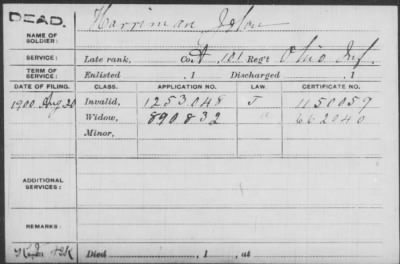 DEAD.
NAME OF SOLDIER: Harriman, John
SERVICE: Late rank, Co. A, 101 Reg't Ohio Inf.
TERM OF SERVICE: Enlisted , 1 Discharged , 1
DATE OF FILING. CLASS. APPLICATION NO. LAW. CERTIFICATE NO.
1900 Aug. 20 Invalid, 1253.048 J 1150059
Widow, 890832 662040
Minor,
ADDITIONAL SERVICES:
REMARKS:
Died , 1 , at